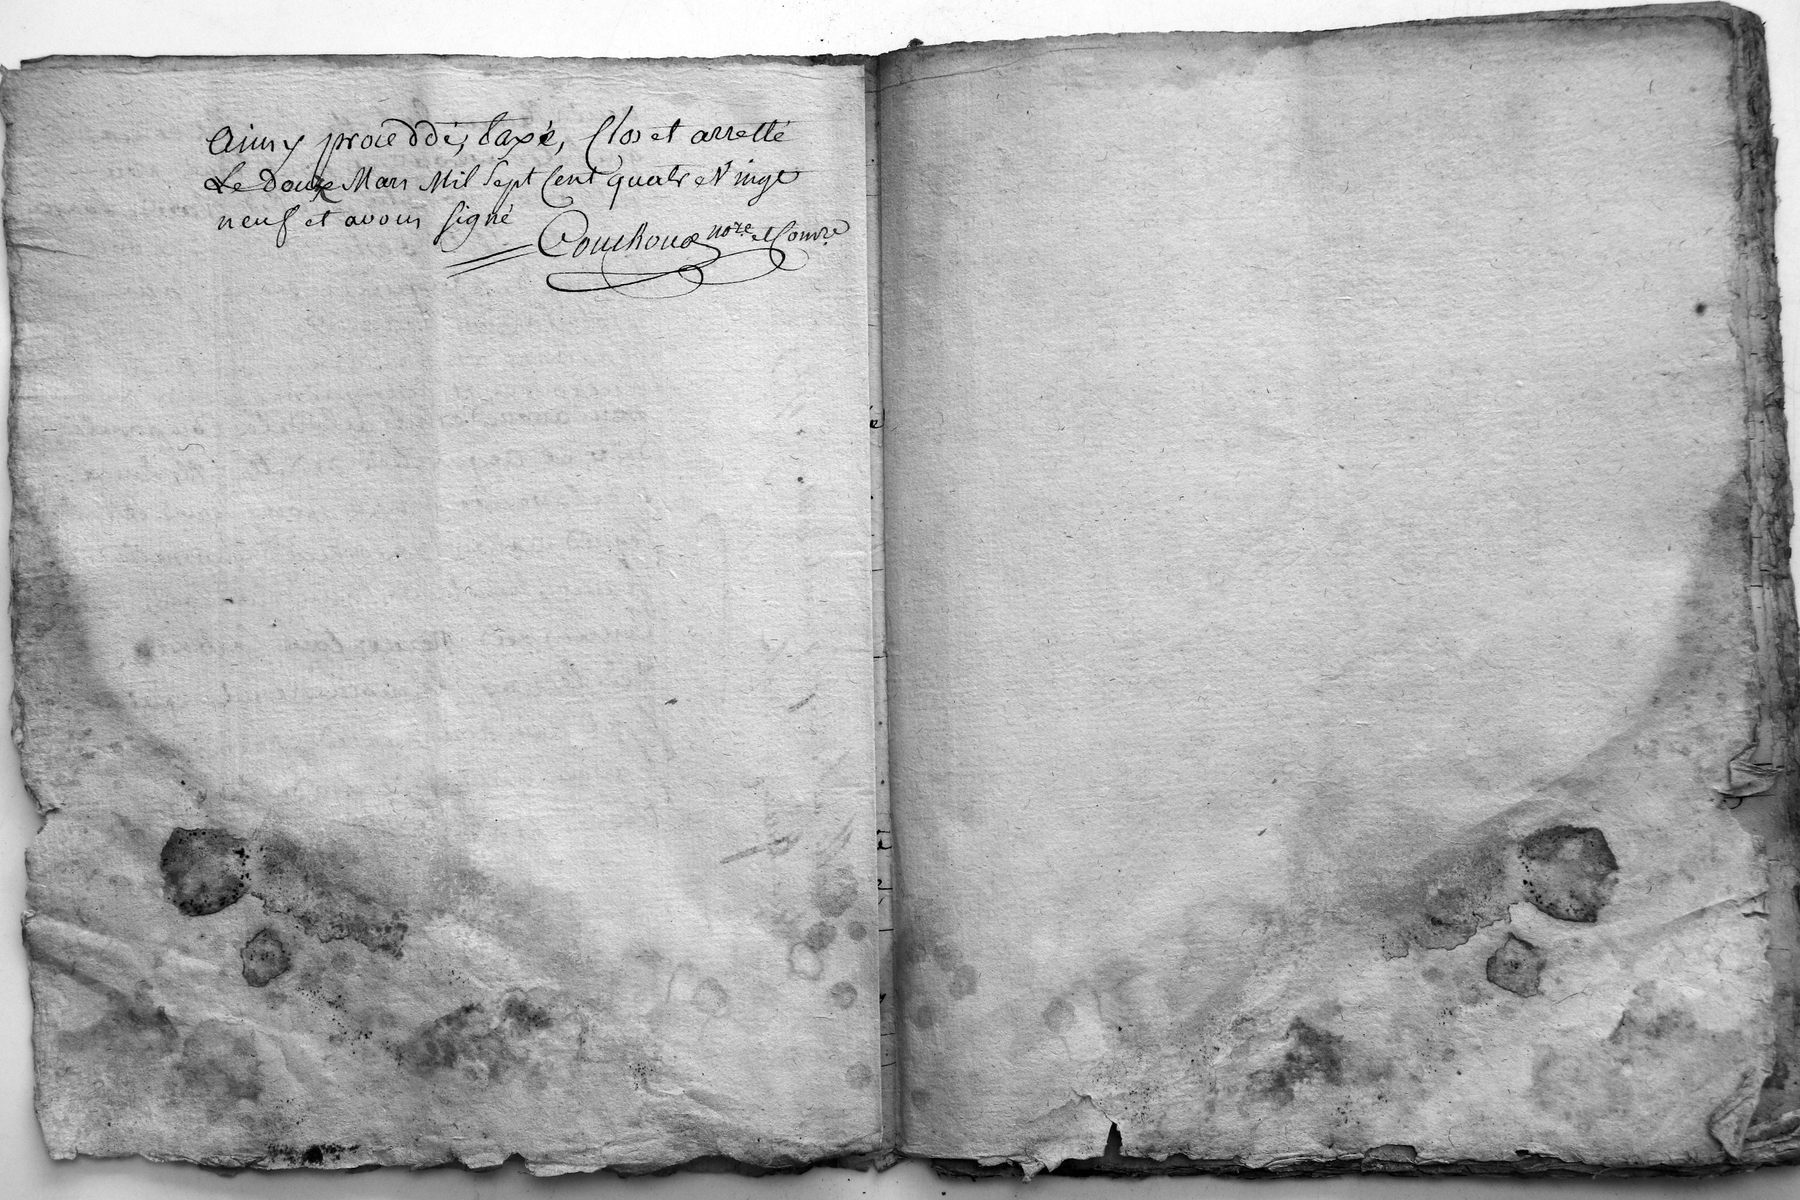 Ainsy proceddé, taxé, Clos et arretté
Le douze Mars Mil Sept Cent quatre Vingt
neuf et avons signé
Couchoud nore. et Comre.